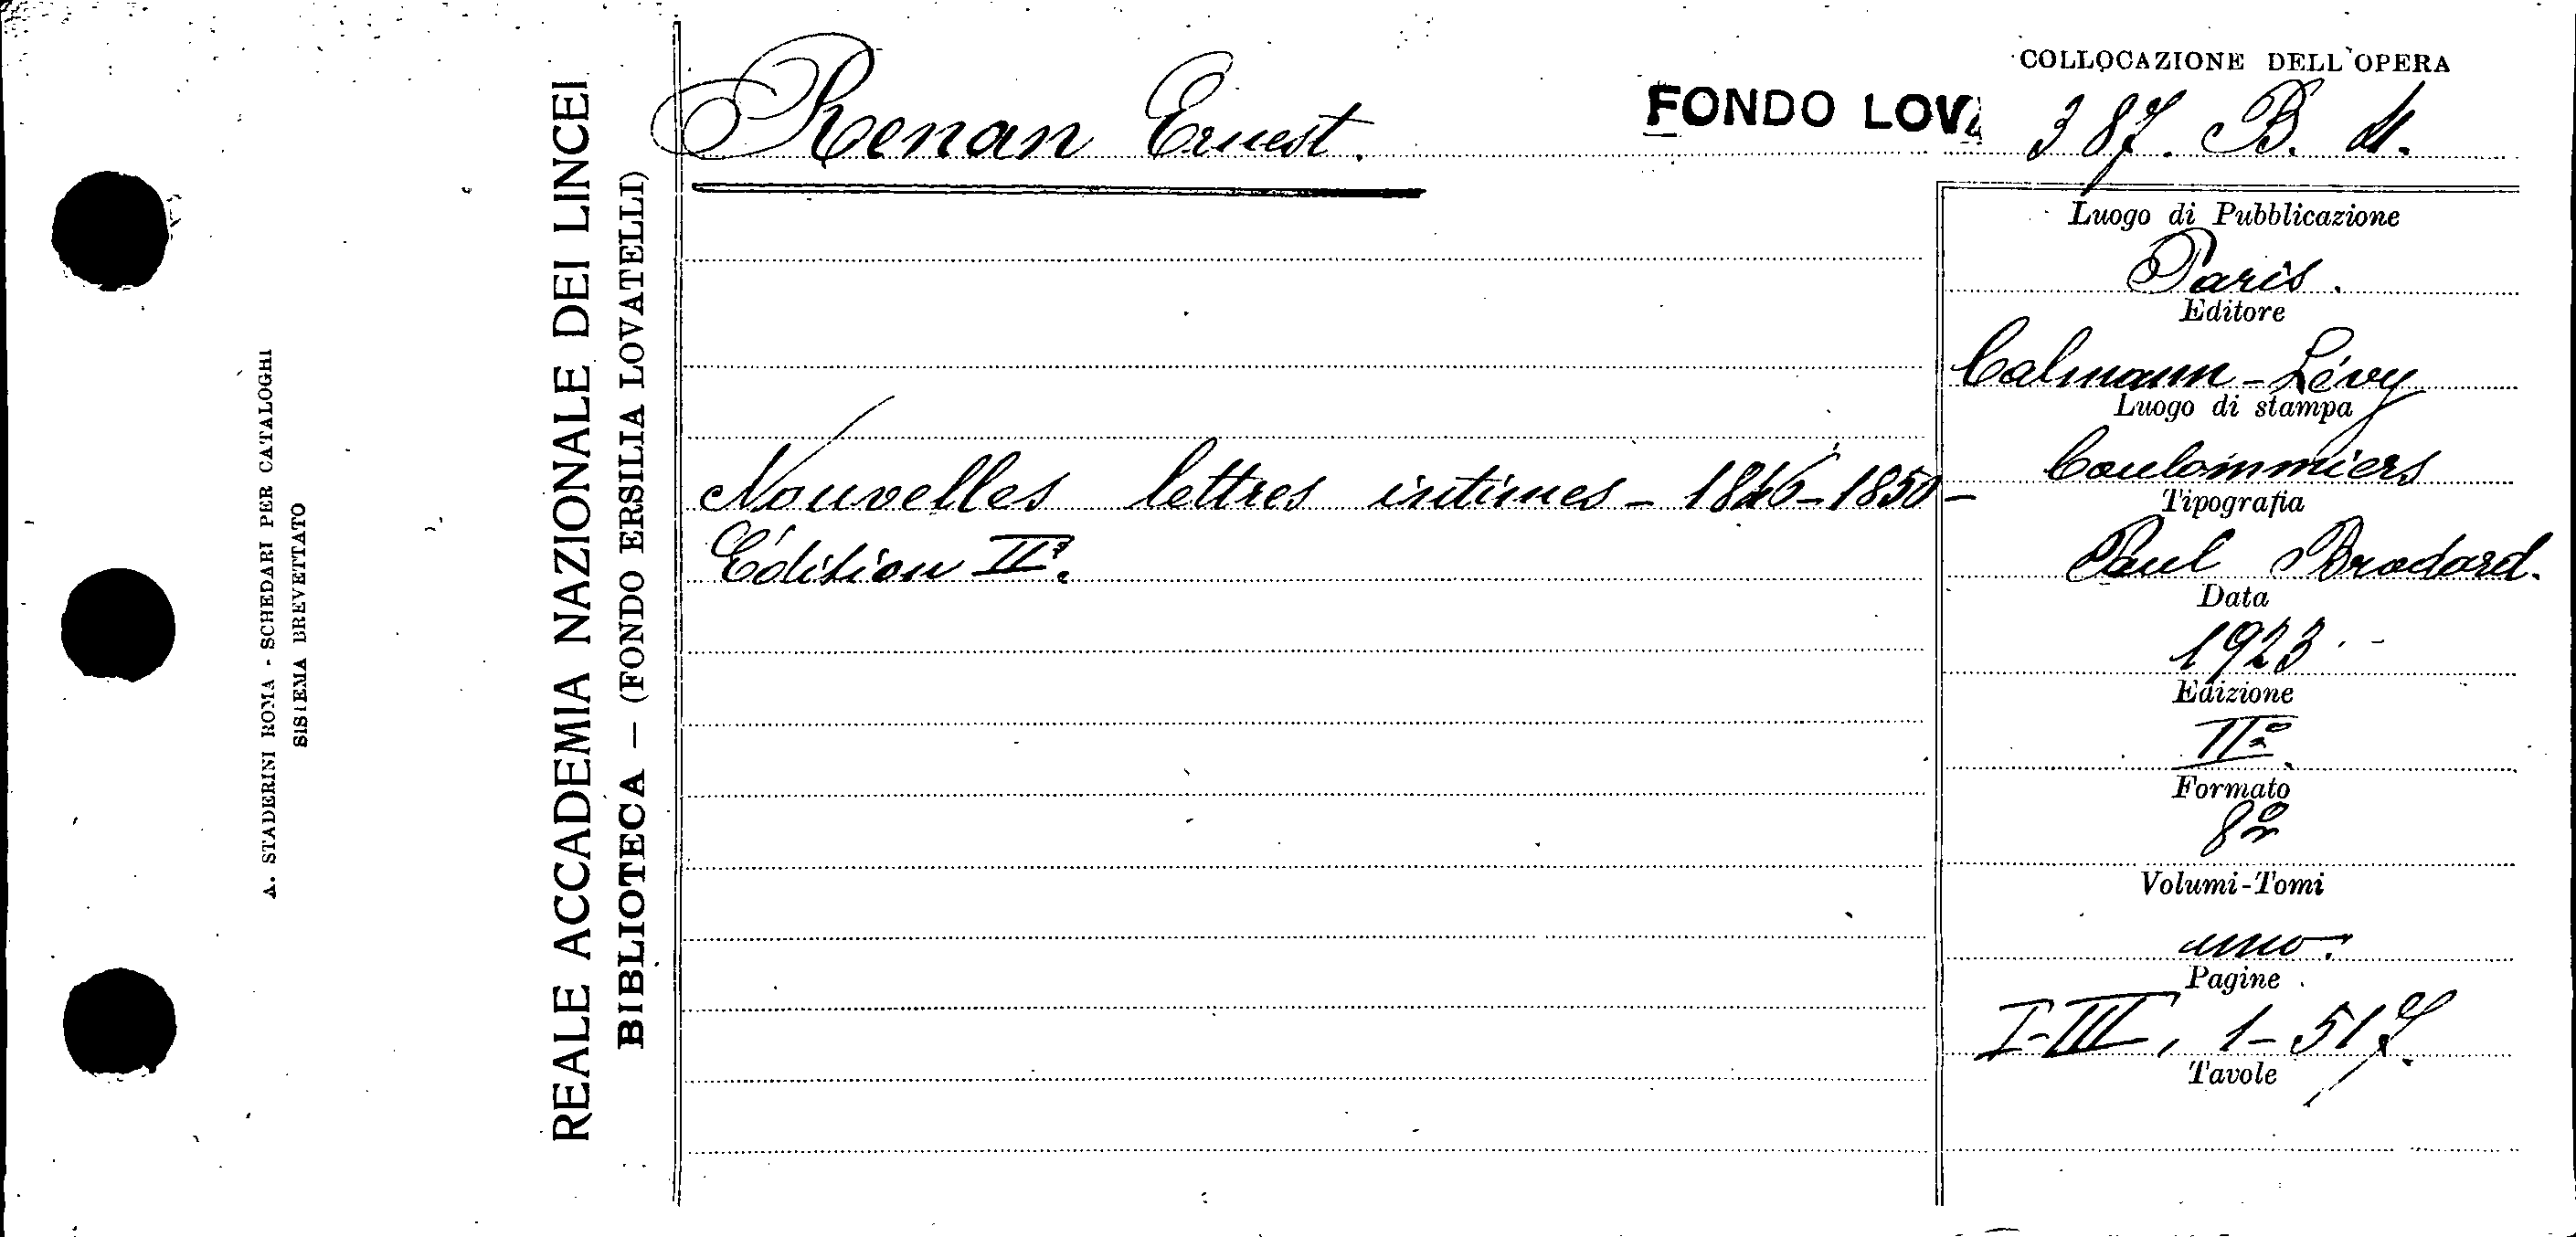 A. STADERINI ROMA - SCHEDARI PER CATALOGHI
SISTEMA BREVETTATO
REALE ACCADEMIA NAZIONALE DEI LINCEI
BIBLIOTECA — (FONDO ERSILIA LOVATELLI)
Renan Ernest.
FONDO LOVA
COLLOCAZIONE DELL'OPERA
387. B.
Nouvelles lettres intimes - 1846-1850 -
Édition IIª.
Luogo di Pubblicazione
Paris.
Editore
Calmann-Lévy
Luogo di stampa
Coulommiers
Tipografia
Paul Brodard.
Data
1923
Edizione
IIª.
Formato
8º
Volumi-Tomi
uno.
Pagine
I-III, 1-517.
Tavole